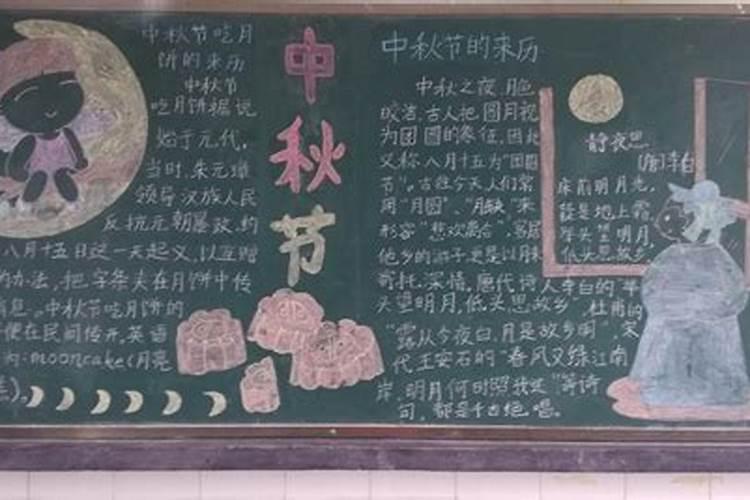 中秋节吃月
饼的来历
中秋节
吃月饼据说
始于元代,
当时,朱元璋
领导汉族人民
反抗元朝暴政,约
八月十五日这一天起义,以互赠
的办法,把字条夹在月饼中传
消息。中秋节吃月饼的
便在民间传开,英语
为:mooncake(月亮
中秋节
中秋节的来历
中秋之夜,月色
皎洁,古人把圆月视
为团圆的象征,因此
又称八月十五为“团圆
节”。古往今天人们常
用“月圆”、“月缺”来
形容“悲欢离合”,客居
他乡的游子更是以月来
寄托深情。唐代诗人李白的“举
头望明月,低头思故乡”,杜甫的
“露从今夜白,月是故乡明”宋
代王安石的“春风又绿江南
岸,明月何时照我还”等诗
句,都是千古绝唱。
静夜思
(唐)李白
床前明月光,
疑是地上霜。
举头望明月,
低头思故乡